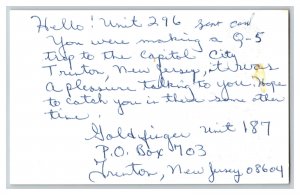 Hello! Unit 296 sent card
You were making a Q-5
trip to the Capitol City
Trenton, New Jersey, it was
a pleasure talking to you. Hope
to catch you in there some other
time!
Goldfinger Unit 187
P.O. Box 703
Trenton, New Jersey 08604